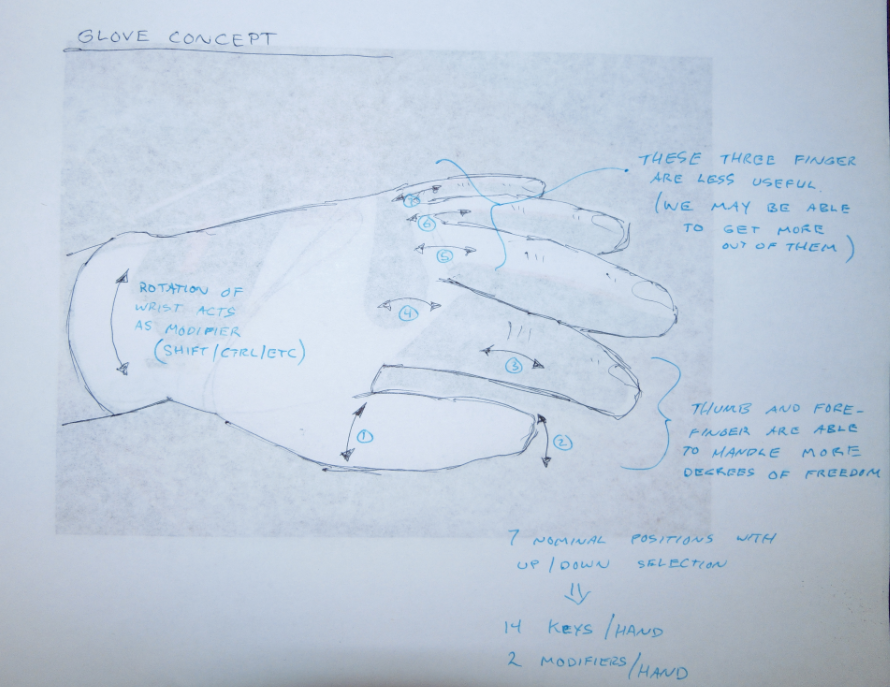 GLOVE CONCEPT
THESE THREE FINGER
ARE LESS USEFUL.
(WE MAY BE ABLE
TO GET MORE
OUT OF THEM)
7
6
5
4
3
1
2
ROTATION OF
WRIST ACTS
AS MODIFIER
(SHIFT/CTRL/ETC)
THUMB AND FORE-
FINGER ARE ABLE
TO HANDLE MORE
DEGREES OF FREEDOM
7 NOMINAL POSITIONS WITH
UP/DOWN SELECTION
14 KEYS/HAND
2 MODIFIERS/HAND